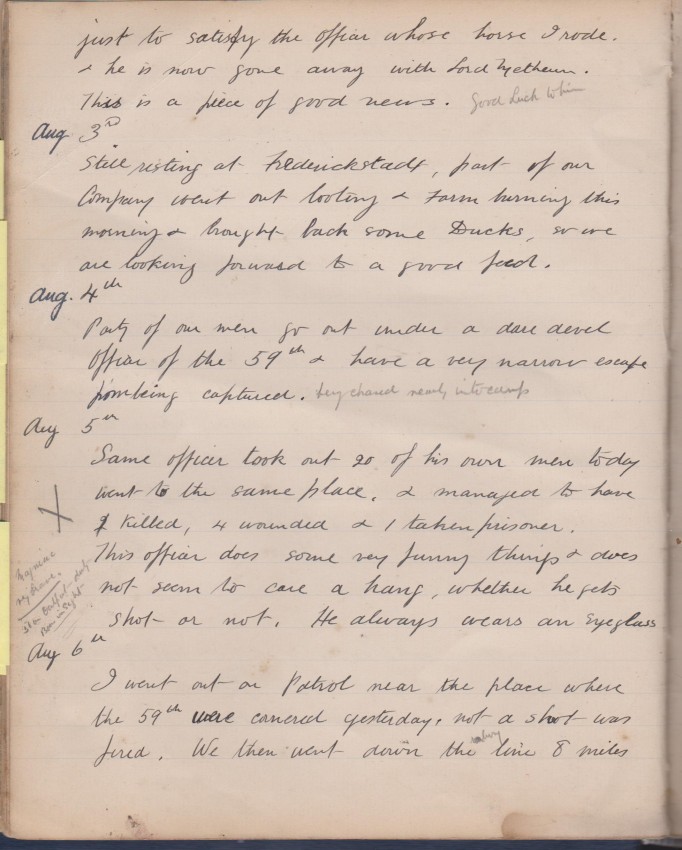 just to satisfy the officer whose horse I rode.
& he is now gone away with Lord Methuen.
This is a piece of good news. Good Luck to him
Aug 3rd
Still resting at Frederickstadt, part of our
Company went out looting & Farm burning this
morning & brought back some Ducks, so we
are looking forward to a good feed.
Aug. 4th
Party of our men go out under a dare devel
Officer of the 59th & have a very narrow escape
from being captured. being chased nearly into camp
Aug 5th
Same officer took out 20 of his own men today
went to the same place, & managed to have
1 killed, 4 wounded & 1 taken prisoner.
This officer does some very funny things & does
not seem to care a hang, whether he gets
shot or not. He always wears an Eyeglass
Aug 6th
I went out on Patrol near the place where
the 59th were cornered yesterday, not a shot was
fired. We then went down the railway line 8 miles